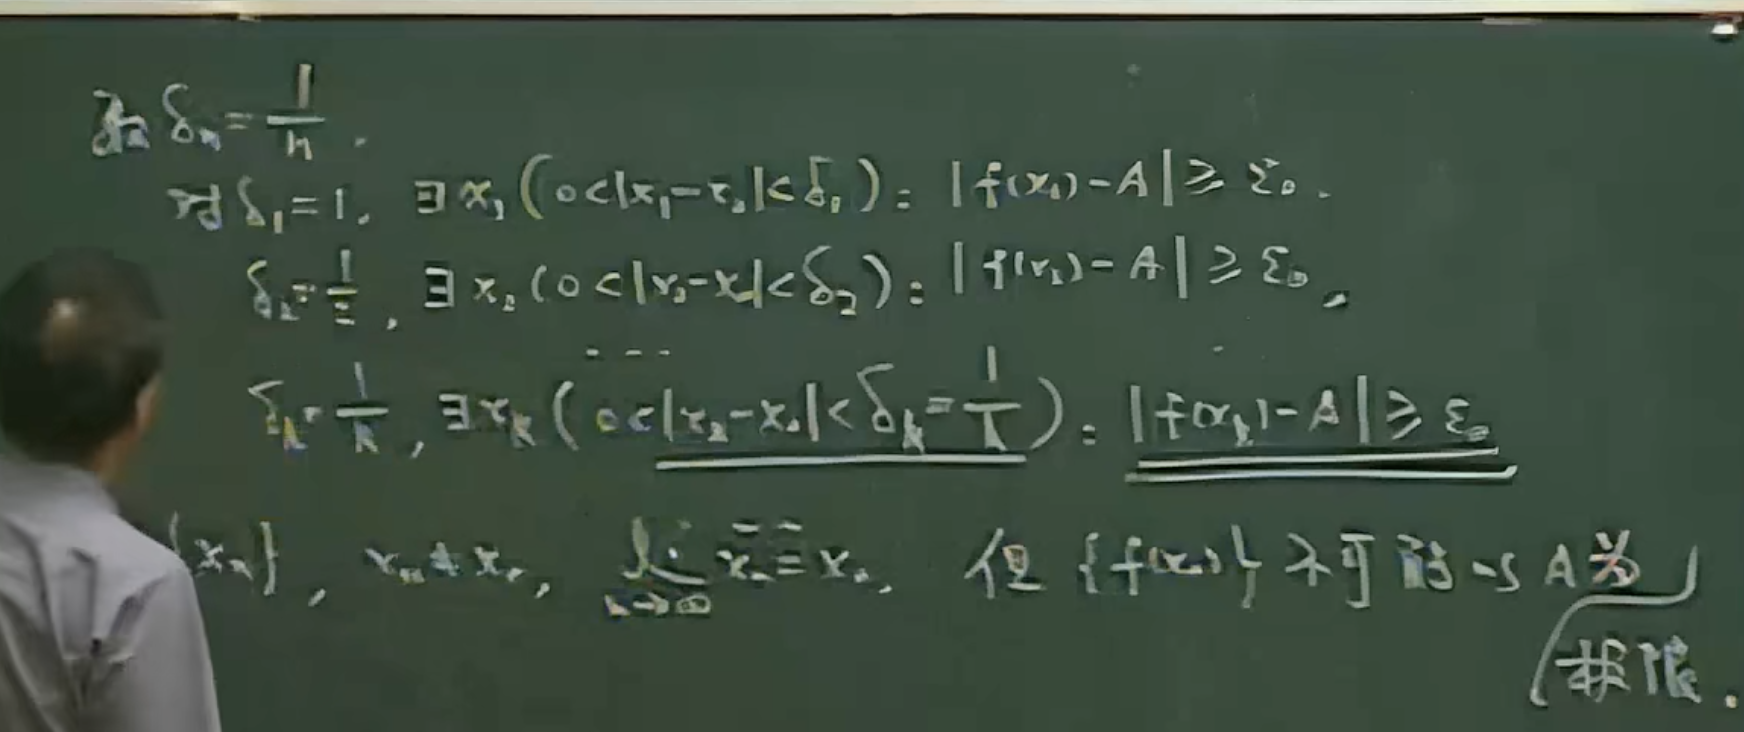 取 δₙ = 1/n.
对 δ₁ = 1, ∃ x₁ (0<|x₁-x₀|<δ₁): |f(x₁)-A| ≥ ε₀.
δ₂ = 1/2, ∃ x₂ (0<|x₂-x₀|<δ₂): |f(x₂)-A| ≥ ε₀.
...
δₖ = 1/k, ∃ xₖ (0<|xₖ-x₀|<δₖ = 1/k): |f(xₖ)-A| ≥ ε₀
{xₙ}, xₙ ≠ x₀, lim n→∞ xₙ = x₀, 但 {f(xₙ)} 不可能以 A 为
极限.